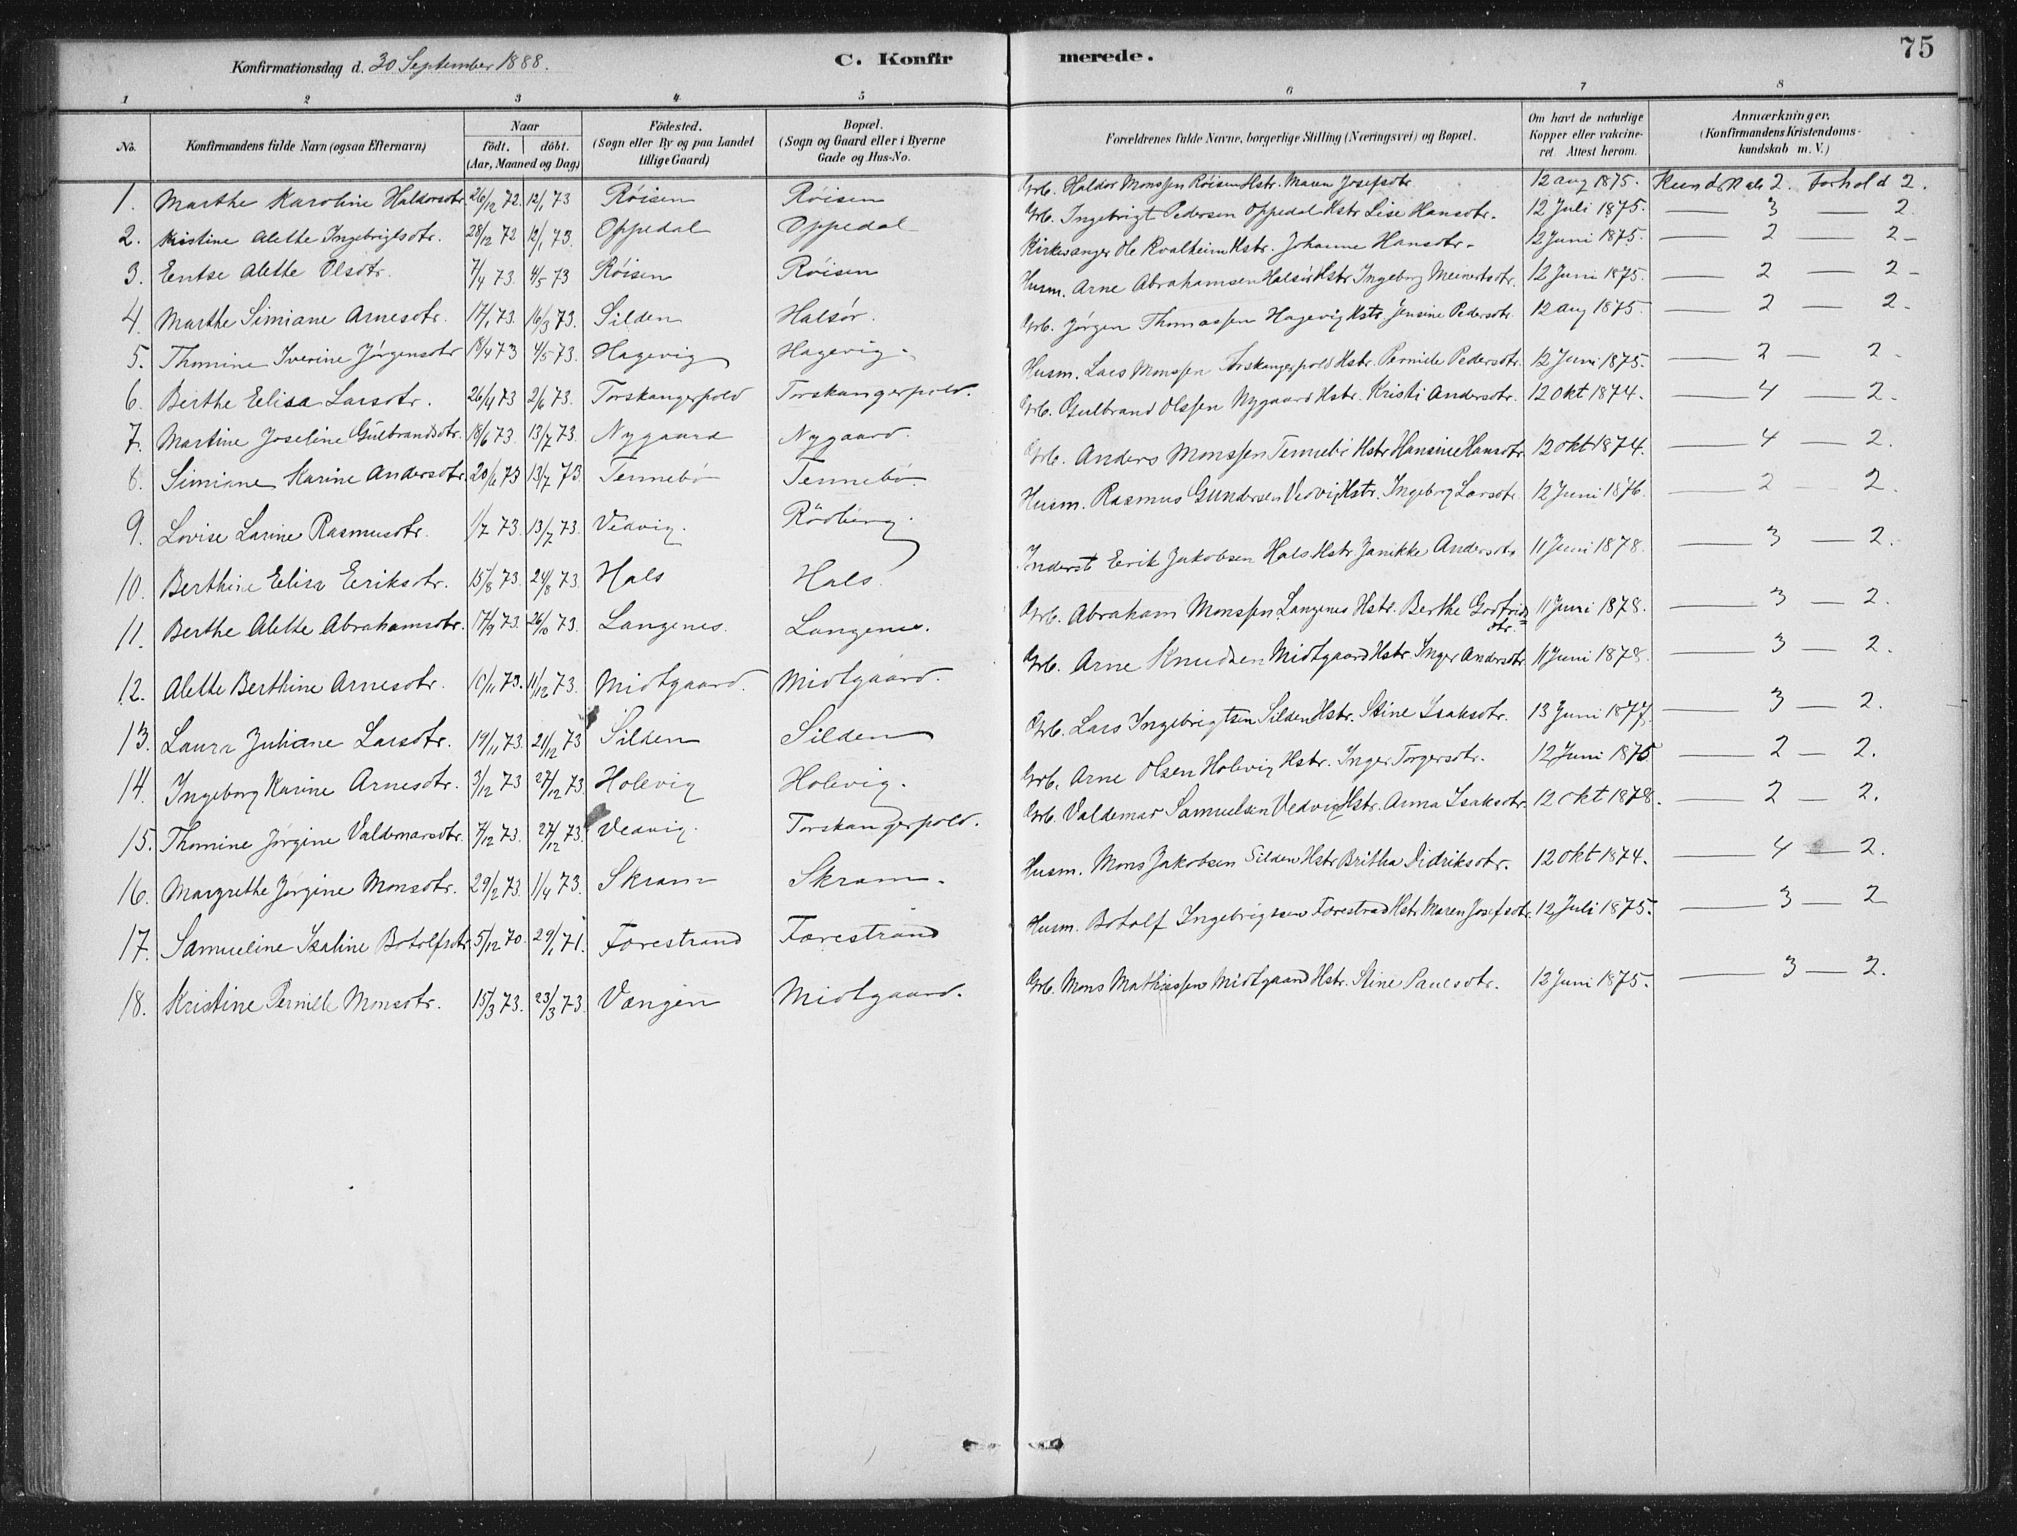 Konfirmationsdag d. 30 September 1888. C. Konfirmerede. 75
1 2 3 4 5 6 7 8
No. Konfirmandens fulde Navn (ogsaa Efternavn) Naar födt. döbt. (Aar, Maaned og Dag) Födested. (Sogn eller By og paa Landet tillige Gaard) Bopæl. (Sogn og Gaard eller i Byerne Gade og Hus-No. Forældrenes fulde Navne, borgerlige Stilling (Næringsvei) og Bopæl. Om havt de naturlige Kopper eller vakcineret. Attest herom. Anmærkninger. (Konfirmandens Kristendomskundskab m. V.)
1. Marthe Karoline Haldorsdtr. 26/12 72. 12/1 73 Röisen Röisen Grb. Haldor Monssen Röisen Hstr. Maren Josefsdtr. 12 aug 1875. Kundskab 2. Forhold 2.
2. Kristine Alette Ingebrigtsdtr. 28/12 72 12/1 73. Oppedal Oppedal Grb. Ingebrigt Pedersen Oppedal Hstr Lise Hansdtr. 12 Juli 1875. — 3 — 2.
3. Eentse Alette Olsdtr. 7/4 73. 4/5 73 Röisen Röisen Kirkesanger Ole Kvalheim Hstr. Johanne Hansdtr. 12 Juni 1875. — 2 — 2 —
4. Marthe Simiane Arnesdtr. 17/1 73. 16/3 73. Silden Halsör. Husm. Arne Abrahamsen Halsör Hstr Ingeborg Meinertsdtr. 12 Juni 1875. — 2 — 2 —
5. Thomine Iverine Jörgensdtr 18/4 73 4/5 73. Hagevig Hagevig. Grb. Jörgen Thomassen Hagevig Hstr. Jensine Pedersdtr. 12 aug 1875. — 2 — 2.
6. Berthe Elisa Larsdtr. 26/4 73 2/6 73. Torskangerpold Torskangerpold. Husm. Lars Monssen Torskangerpold Hstr. Pernille Pedersdtr. 12 Juni 1875. — 2 — 2.
7. Martine Joseline Gulbrandsdtr. 18/6 73. 13/7 73. Nygaard Nygaard. Grb. Gulbrand Olssen Nygaard Hstr. Kristi Andersdtr. 12 Okt 1874. — 4 — 2.
8. Simiane Karine Andersdtr. 20/6 73 13/7 73. Tennebö Tennebö. Grb. Anders Monssen Tennebö Hstr Hansine Hansdtr 12 Okt 1874. — 4 — 2.
9. Lovise Larine Rasmusdtr. 1/7 73. 13/7 73. Vedvig. Rödberg. Husm. Rasmus Gundersen Vedvig Hstr. Ingeborg Larsdtr. 12 Juni 1876. — 2 — 2.
10. Berthine Elisa Eriksdtr. 15/8 73. 24/8 73 Hals Hals. Inderst Erik Jakobsen Hals Hstr. Janikke Andersdtr 11 Juni 1878. — 3 — 2.
11. Berthe Alette Abrahamsdtr. 17/9 73. 26/10 73. Langenes. Langenes. Grb. Abraham Monssen Langenes Hstr. Berthe Godfridsdtr. 11 Juni 1878. — 3 — 2.
12. Alette Berthine Arnesdtr. 10/11 73. 11/12 73. Midtgaard. Midtgaard. Grb. Arne Knudsen Midtgaard Hstr. Inger Andersdtr 11 Juni 1878. — 3 — 2.
13. Laura Juliane Larsdtr. 19/11 73. 21/12 73 Silden Silden Grb. Lars Ingebrigtsen Silden Hstr. Stine Isaksdtr. 13 Juni 1877. — 3 — 2.
14. Ingeborg Karine Arnesdtr. 3/12 73 27/12 73. Holevig Holevig. Grb. Arne Olsen Holevig Hstr. Inger Torgersdtr. 12 Juni 1875 — 2 — 2.
15. Thomine Jörgine Valdemarsdtr. 7/12 73. 27/12 73. Vedvig. Torskangerpold. Grb. Valdemar Samuelsen Vedvig Hstr. Anna Isaksdtr. 12 Okt 1878. — 2 — 2.
16. Margrethe Jörgine Monsdtr. 29/2 73. 1/4 73. Skram Skram. Husm. Mons Jakobsen Silden Hstr Britha Didriksdtr. 12 Okt 1874. — 4 — 2.
17. Samueline Isaline Botolfsdtr 5/12 70. 29/1 71. Farestrand Farestrand Husm. Botolf Ingebrigtsen Farestrand Hstr Maren Josefsdtr. 12 Juli 1875. — 3 — 2
18. Kristine Pernille Monsdtr. 15/3 73. 23/3 73. Vangen Midtgaard. Grb. Mons Mathiassen Midtgaard Hstr. Stine Paulsdtr. 12 Juni 1875. — 3 — 2.